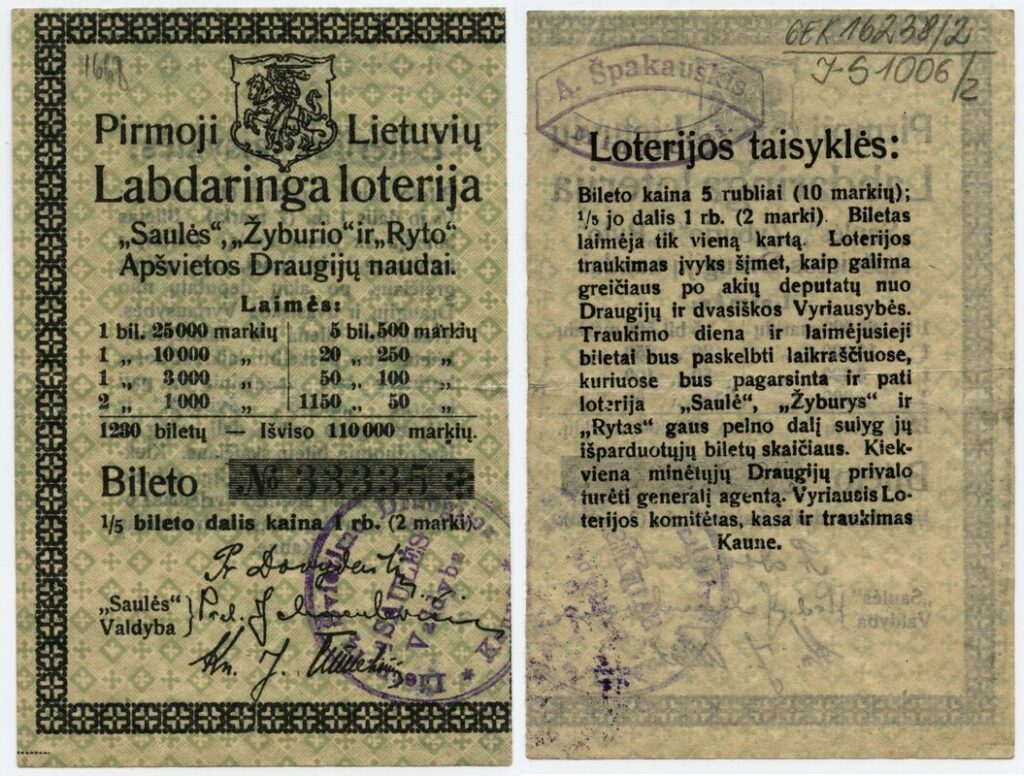 1668
Pirmoji Lietuvių
Labdaringa loterija
„Saulės“, „Žyburio“ ir „Ryto“
Apšvietos Draugijų naudai.
Laimės:
1 bil. 25 000 markių 5 bil. 500 markių
1 „ 10 000 „ 20 „ 250 „
1 „ 3 000 „ 50 „ 100 „
2 „ 1 000 „ 1150 „ 50 „
1230 biletų — Išviso 110 000 markių.
Bileto № 38335
1/5 bileto dalis kaina 1 rb. (2 marki).
„Saulės“
Valdyba
SAULĖS
Valdyba
GEK 16238/2
J-S 1006/2
A. Špakauskis
Loterijos taisyklės:
Bileto kaina 5 rubliai (10 markių);
1/5 jo dalis 1 rb. (2 marki). Biletas
laimėja tik vieną kartą. Loterijos
traukimas įvyks šįmet, kaip galima
greičiaus po akių deputatų nuo
Draugijų ir dvasiškos Vyriausybės.
Traukimo diena ir laimėjusieji
biletai bus paskelbti laikraščiuose,
kuriuose bus pagarsinta ir pati
loterija „Saulė“, „Žyburys“ ir
„Rytas“ gaus pelno dalį sulyg jų
išparduotųjų biletų skaičiaus. Kiek-
viena minėtųjų Draugijų privalo
turėti generalį agentą. Vyriausis Lo-
terijos komitėtas, kasa ir traukimas
Kaune.